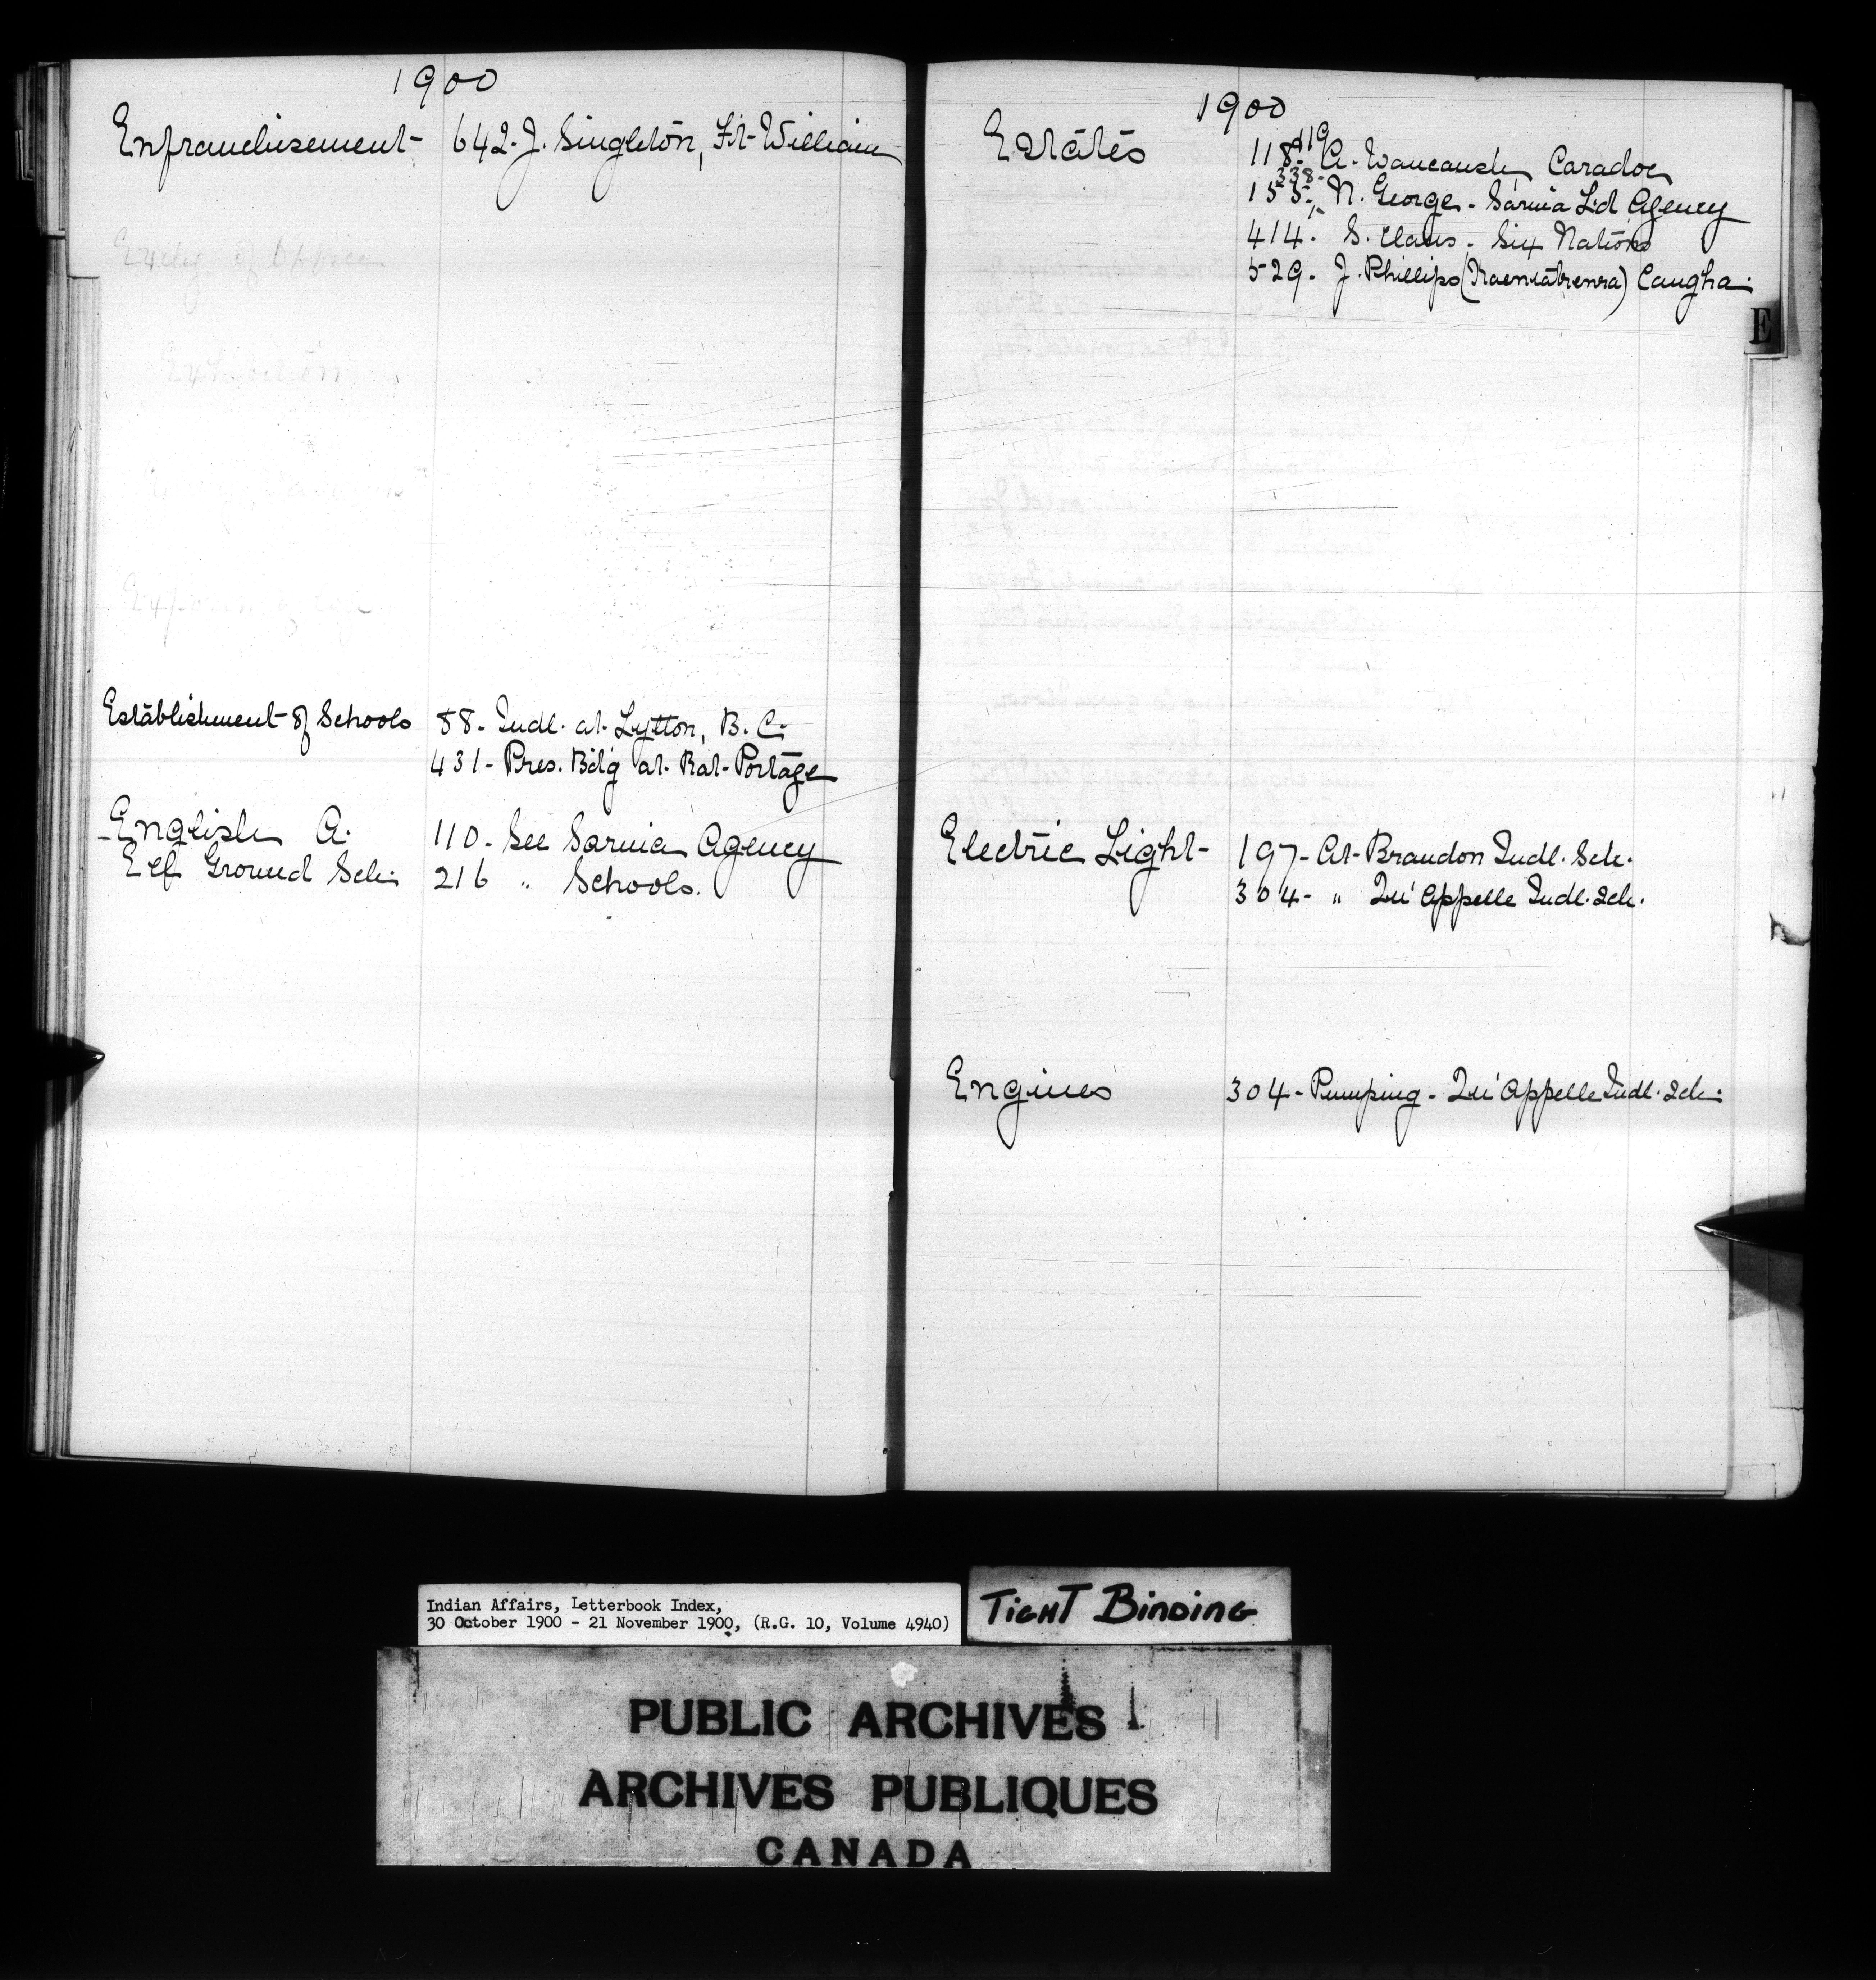 1900
Enfranchisement - 642. J. Singleton, Ft. William
Establishment of Schools 88 - Indl. at Lytton, B.C.
431 - Pres. Bdg at Rat Portage
English A. 110 - See Sarnia Agency
Elf Ground Sch. 216 " Schools.
1900
Estates 118-119 A. Waucaush, Caradoc
338-
155, N. George - Sarnia Ld Agency
414. S. Claus - Six Nations
529. J. Phillips ( ) Caugha.
E
Electric Light - 197 - At Brandon Indl. Sch.
304 - " Qu'Appelle Indl. Sch.
Engines 304 - Pumping - Qu'Appelle Indl. Sch.
Indian Affairs, Letterbook Index,
30 October 1900 - 21 November 1900, (R.G. 10, Volume 4940)
TIGHT BINDING
PUBLIC ARCHIVES
ARCHIVES PUBLIQUES
CANADA